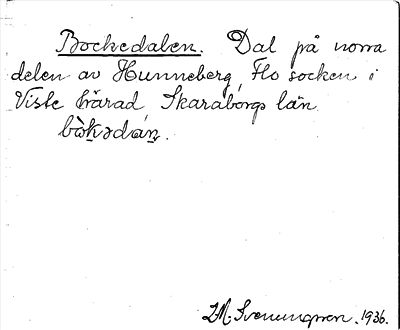 Bockedalen. Dal på norra
delen av Hunneberg, Flo socken i
Viste härad, Skaraborgs län.
bòkədán.
I.M. Svenungsson. 1936.